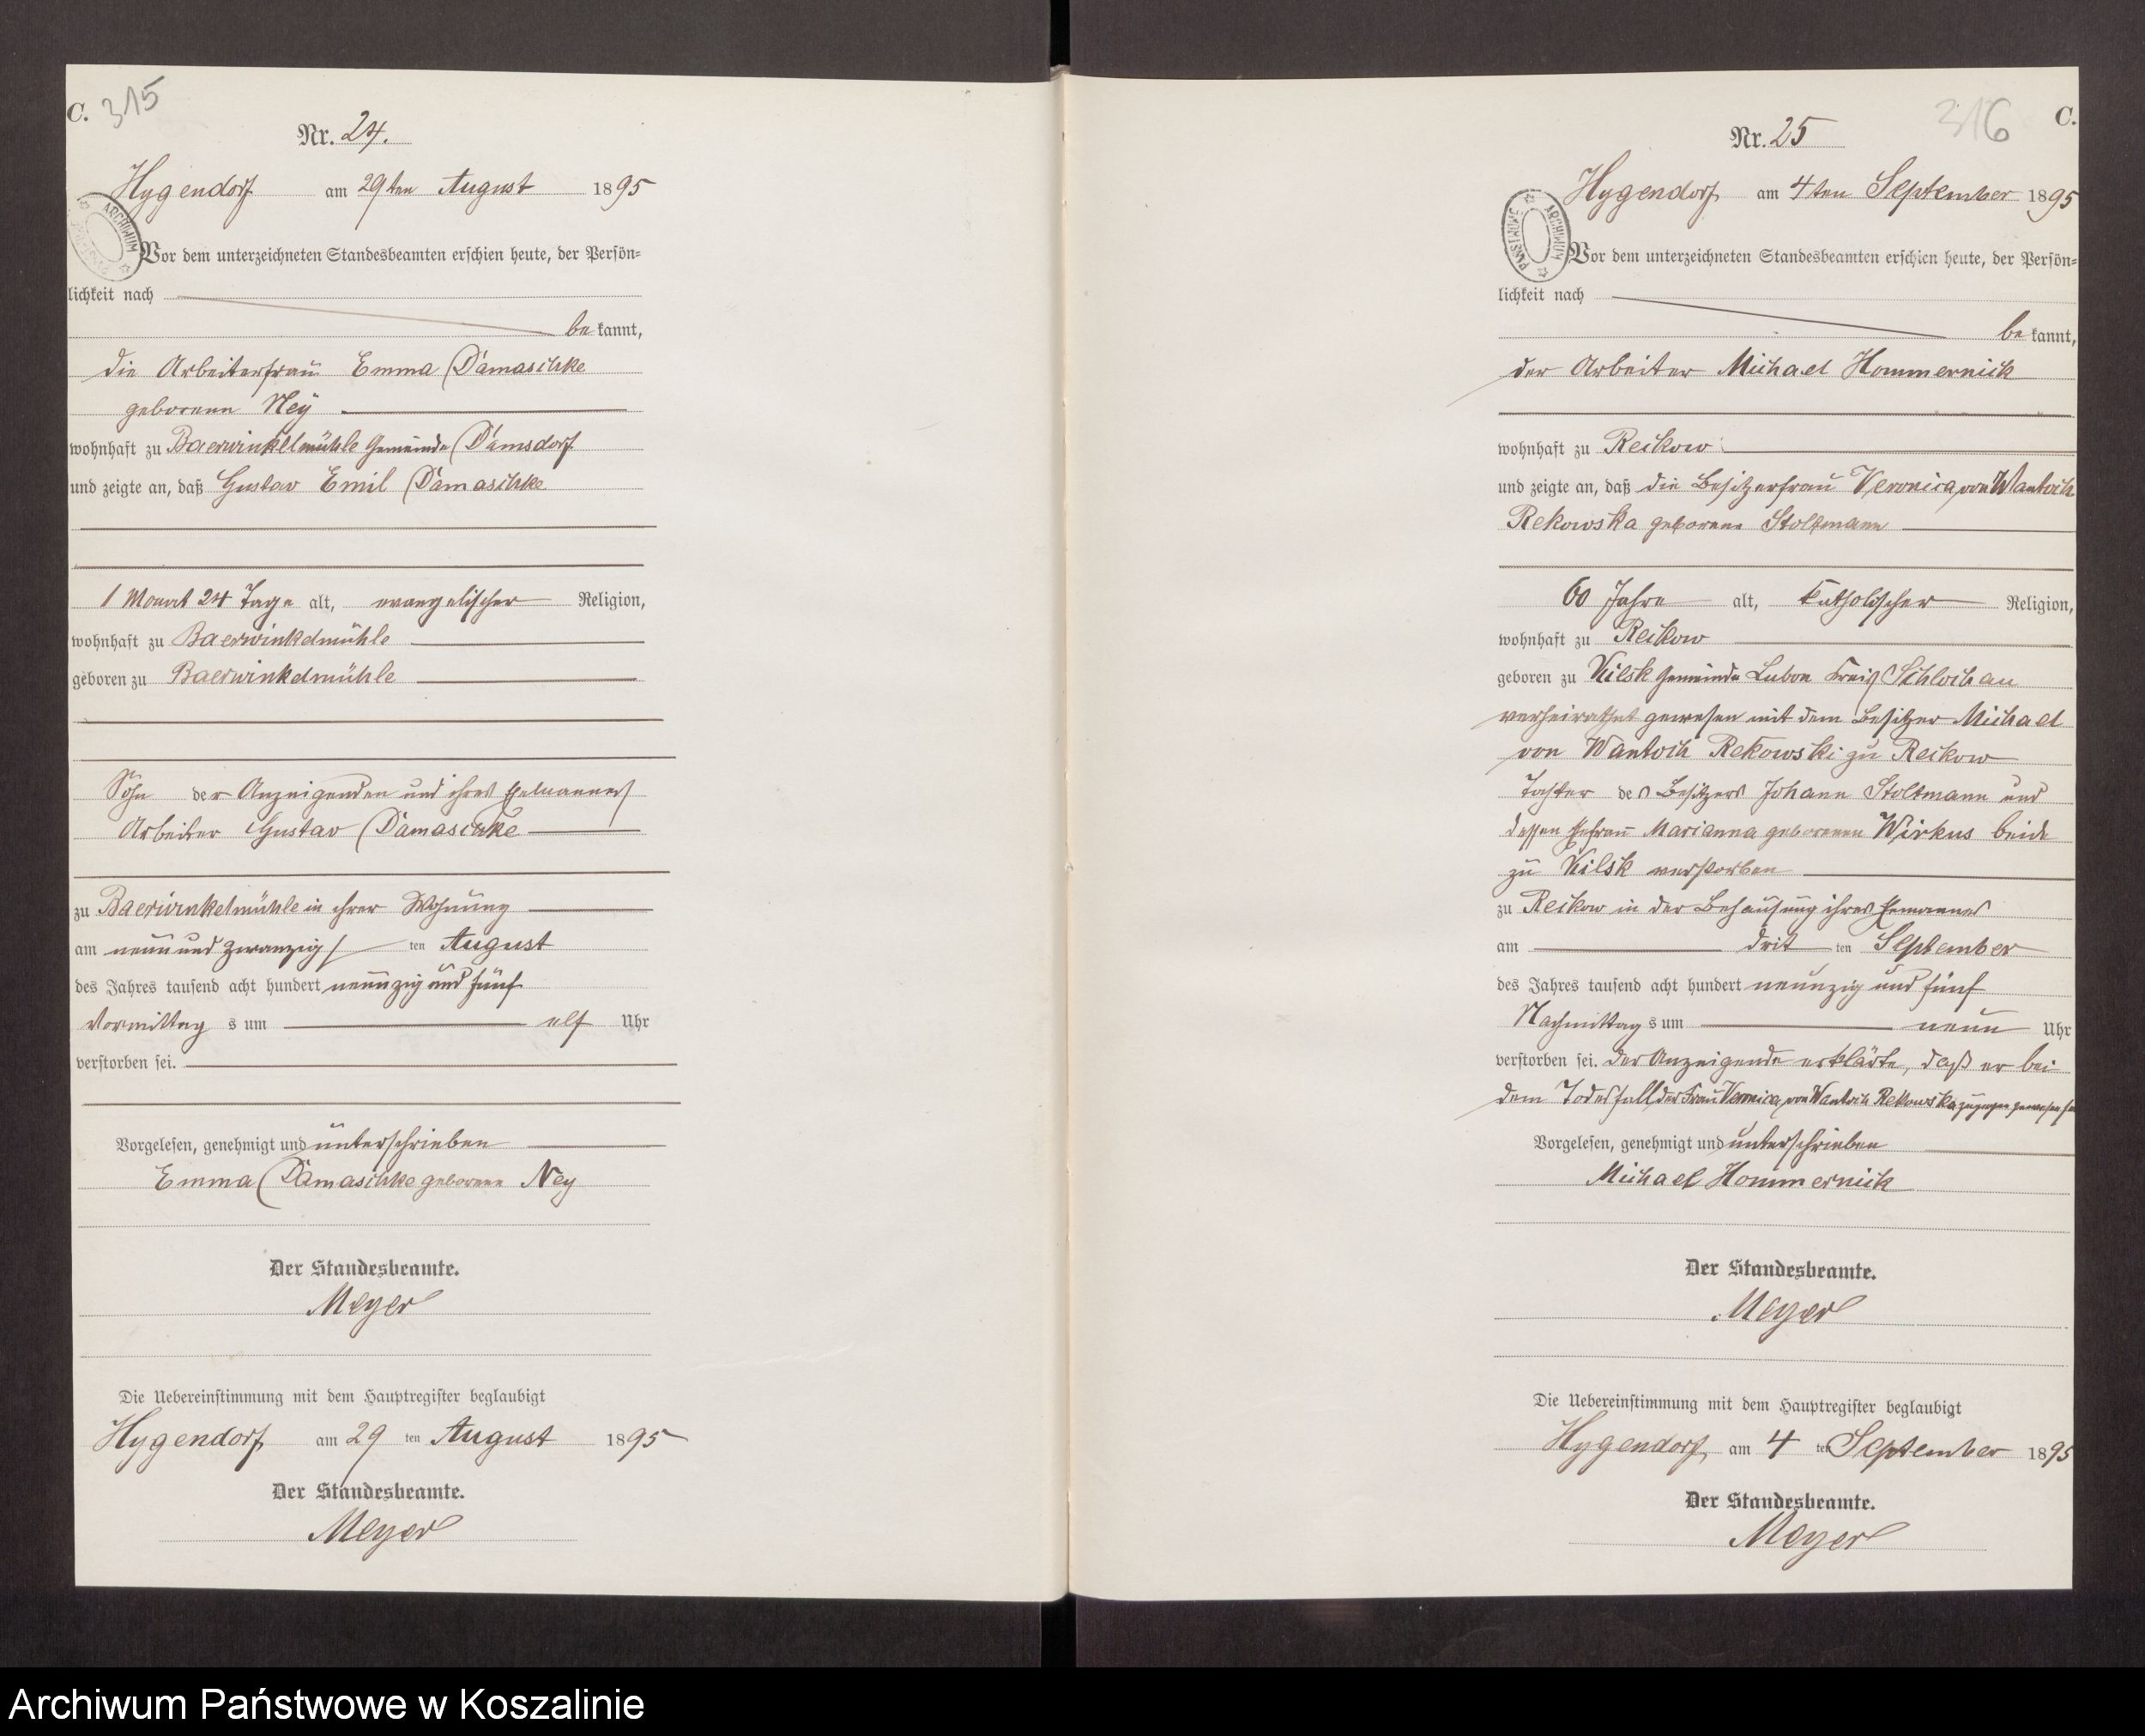 C. 315
Nr. 24.
Hygendorf am 29ten August 1895
Vor dem unterzeichneten Standesbeamten erschien heute, der Persön=
lichkeit nach
be kannt,
die Arbeiterfrau Emma Damaschke
geborene Ney
wohnhaft zu Baerwinkelmühle Gemeinde Damsdorf
und zeigte an, daß Gustav Emil Damaschke
1 Monat 24 Tage alt, evangelischer Religion,
wohnhaft zu Baerwinkelmühle
geboren zu Baerwinkelmühle
Sohn der Anzeigenden und ihres Ehemannes
Arbeiter Gustav Damaschke
zu Baerwinkelmühle in ihrer Wohnung
am neun und zwanzigs ten August
des Jahres tausend acht hundert neunzig und fünf
Vormittag s um elf Uhr
verstorben sei.
Vorgelesen, genehmigt und unterschrieben
Emma Damaschke geborene Ney
Der Standesbeamte.
Meyer
Die Uebereinstimmung mit dem Hauptregister beglaubigt
Hygendorf am 29 ten August 1895
Der Standesbeamte.
Meyer
316 C.
Nr. 25
Hygendorf am 4ten September 1895
ARCHIWUM PAŃSTWOWE
Vor dem unterzeichneten Standesbeamten erschien heute, der Persön=
lichkeit nach
be kannt,
der Arbeiter Michael Hommernick
wohnhaft zu Reckow
und zeigte an, daß die Besitzerfrau Veronica von Wantoch
Rekowska geborene Stoltmann
60 Jahre alt, katholischer Religion,
wohnhaft zu Reckow
geboren zu Kilsk Gemeinde Lubon Kreis Schlochau
verheirathet gewesen mit dem Besitzer Michael
von Wantoch Rekowski zu Reckow
Tochter des Besitzers Johann Stoltmann und
dessen Ehefrau Marianna geborenen Wirkus beide
zu Kilsk verstorben
zu Reckow in der Behausung ihres Ehemannes
am drit ten September
des Jahres tausend acht hundert neunzig und fünf
Nachmittag s um neun Uhr
verstorben sei. Der Anzeigende erklärte, daß er bei
dem Todesfall der Frau Veronica von Wantoch Rekowska zugegen gewesen sei
Vorgelesen, genehmigt und unterschrieben
Michael Hommernick
Der Standesbeamte.
Meyer
Die Uebereinstimmung mit dem Hauptregister beglaubigt
Hygendorf, am 4 ten September 1895
Der Standesbeamte.
Meyer
Archiwum Państwowe w Koszalinie